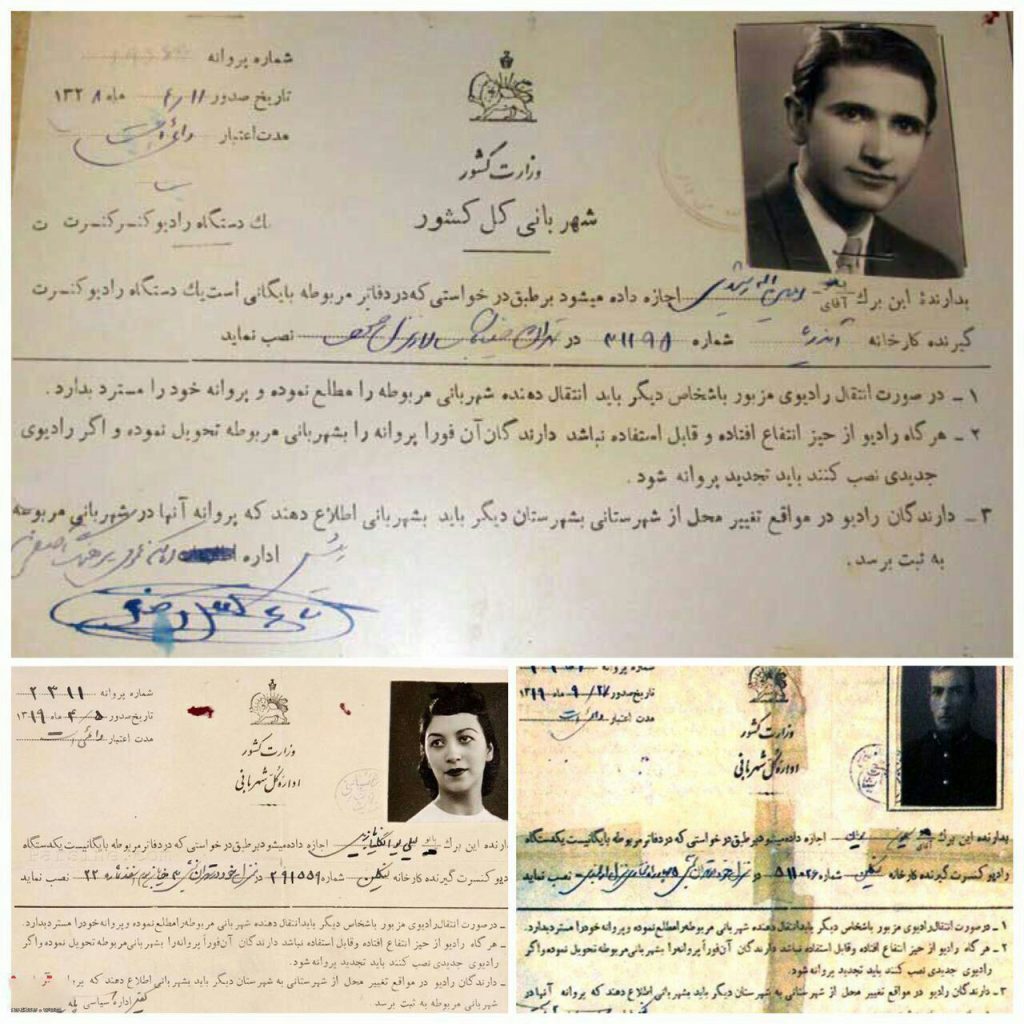 شماره پروانه
تاریخ صدور ۱۱ ر ۴ ماه ۱۳۲۸
مدت اعتبار
یك دستگاه رادیو کنسرت
وزارت کشور
شهربانی کل کشور
بدارندهٔ این برك بانو آقای اجازه داده میشود بر طبق در خواستی که در دفاتر مربوطه بایگانی است یك دستگاه رادیو کنسرت
گیرنده کارخانه آندرآ شماره ۳۱۱۹۸ در تهران خیابان نصب نماید
۱ ـ در صورت انتقال رادیوی مزبور باشخاص دیگر باید انتقال دهنده شهربانی مربوطه را مطلع نموده و پروانه خود را مسترد بدارد .
۲ ـ هر گاه رادیو از حیز انتفاع افتاده و قابل استفاده نباشد دارندگان آن فورا پروانه را بشهربانی مربوطه تحویل نموده و اگر رادیوی
جدیدی نصب کنند باید تجدید پروانه شود .
۳ ـ دارندگان رادیو در مواقع تغییر محل از شهرستانی بشهرستان دیگر باید بشهربانی اطلاع دهند که پروانه آنها در شهربانی مربوطه
به ثبت برسد .
اداره
شماره پروانه ۲۳۱۱
تاریخ صدور ۵ ر ۴ ماه ۱۳۱۹
مدت اعتبار دائمی است
وزارت کشور
ادارهٔ کل شهربانی
دارنده این برك بانو اجازه داده میشود بر طبق در خواستی که در دفاتر مربوطه بایگانیست یکدستگاه
رادیو کنسرت گیرنده کارخانه شماره ۲۹۱۵۵۹ در منزل خود در تهران نصب نماید
ـ در صورت انتقال رادیوی مزبور باشخاص دیگر باید انتقال دهنده شهربانی مربوطه را مطلع نموده و پروانه خود را مسترد بدارد.
ـ هر گاه رادیو از حیز انتفاع افتاده و قابل استفاده نباشد دارندگان آن فوراً پروانه را بشهربانی مربوطه تحویل نموده و اگر
رادیوی جدیدی نصب کنند باید تجدید پروانه شود.
ـ دارندگان رادیو در مواقع تغییر محل از شهرستانی به شهرستان دیگر باید بشهربانی اطلاع دهند که
شهربانی مربوطه به ثبت برسد
اداره سیاسی
تاریخ صدور ماه ۱۳۱۹
مدت اعتبار دائمی است
وزارت کشور
ادارهٔ کل شهربانی
بدارنده این برك بانو آقای اجازه داده میشود بر طبق در خواستی که در دفاتر مربوطه بایگانیست یکدستگاه
رادیو کنسرت گیرنده کارخانه شماره در منزل نصب نماید
۱ ـ در صورت انتقال رادیوی مزبور باشخاص دیگر باید انتقال دهنده شهربانی مربوطه را مطلع نموده و پروانه خود را مسترد بدارد.
۲ ـ هر گاه رادیو از حیز انتفاع افتاده و قابل استفاده نباشد دارندگان آن فوراً پروانه را بشهربانی مربوطه تحویل نموده و اگر
رادیوی جدیدی نصب کنند باید تجدید پروانه شود.
۳ ـ دارندگان رادیو در مواقع تغییر محل از شهرستانی به شهرستان دیگر باید بشهربانی اطلاع دهند که پروانه آنها در